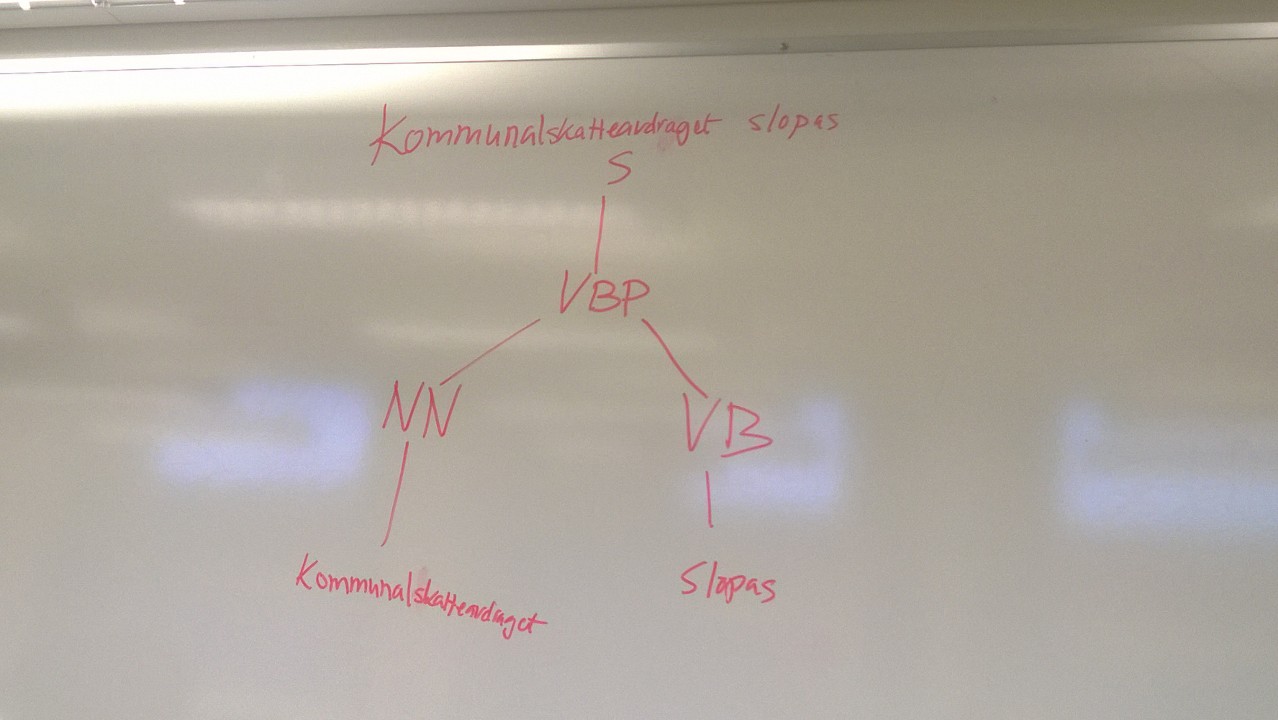 Kommunalskatteavdraget slopas
S
VBP
NN VB
Kommunalskatteavdraget Slopas